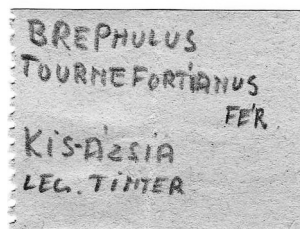 BREPHULUS
TOURNEFORTIANUS
FÉR.
KIS-ÁZSIA
LEG. TIMTER